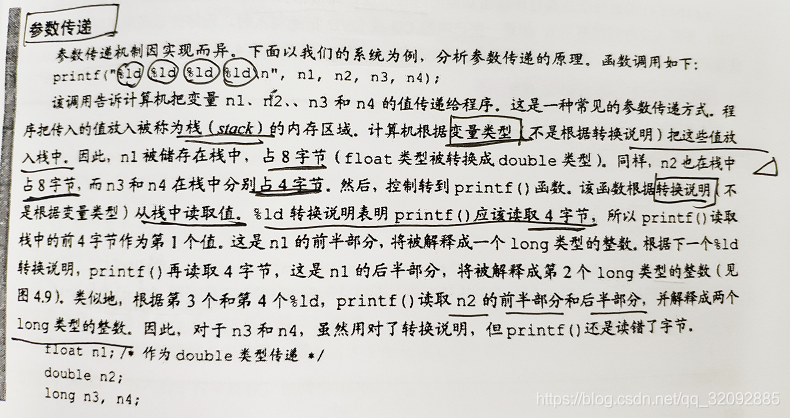 参数传递
参数传递机制因实现而异。下面以我们的系统为例，分析参数传递的原理。函数调用如下：
printf("%ld %ld %ld %ld\n", n1, n2, n3, n4);
该调用告诉计算机把变量 n1、n2、、n3 和 n4 的值传递给程序。这是一种常见的参数传递方式。程
序把传入的值放入被称为栈（stack）的内存区域。计算机根据变量类型（不是根据转换说明）把这些值放
入栈中。因此，n1 被储存在栈中，占 8 字节（float 类型被转换成 double 类型）。同样，n2 也在栈中
占 8 字节，而 n3 和 n4 在栈中分别占 4 字节。然后，控制转到 printf() 函数。该函数根据转换说明（不
是根据变量类型）从栈中读取值。%ld 转换说明表明 printf() 应该读取 4 字节，所以 printf() 读取
栈中的前 4 字节作为第 1 个值。这是 n1 的前半部分，将被解释成一个 long 类型的整数。根据下一个%ld
转换说明，printf() 再读取 4 字节，这是 n1 的后半部分，将被解释成第 2 个 long 类型的整数（见
图 4.9）。类似地，根据第 3 个和第 4 个%ld，printf() 读取 n2 的前半部分和后半部分，并解释成两个
long 类型的整数。因此，对于 n3 和 n4，虽然用对了转换说明，但 printf() 还是读错了字节。
float n1; /* 作为 double 类型传递 */
double n2;
long n3, n4;
https://blog.csdn.net/qq_32092885